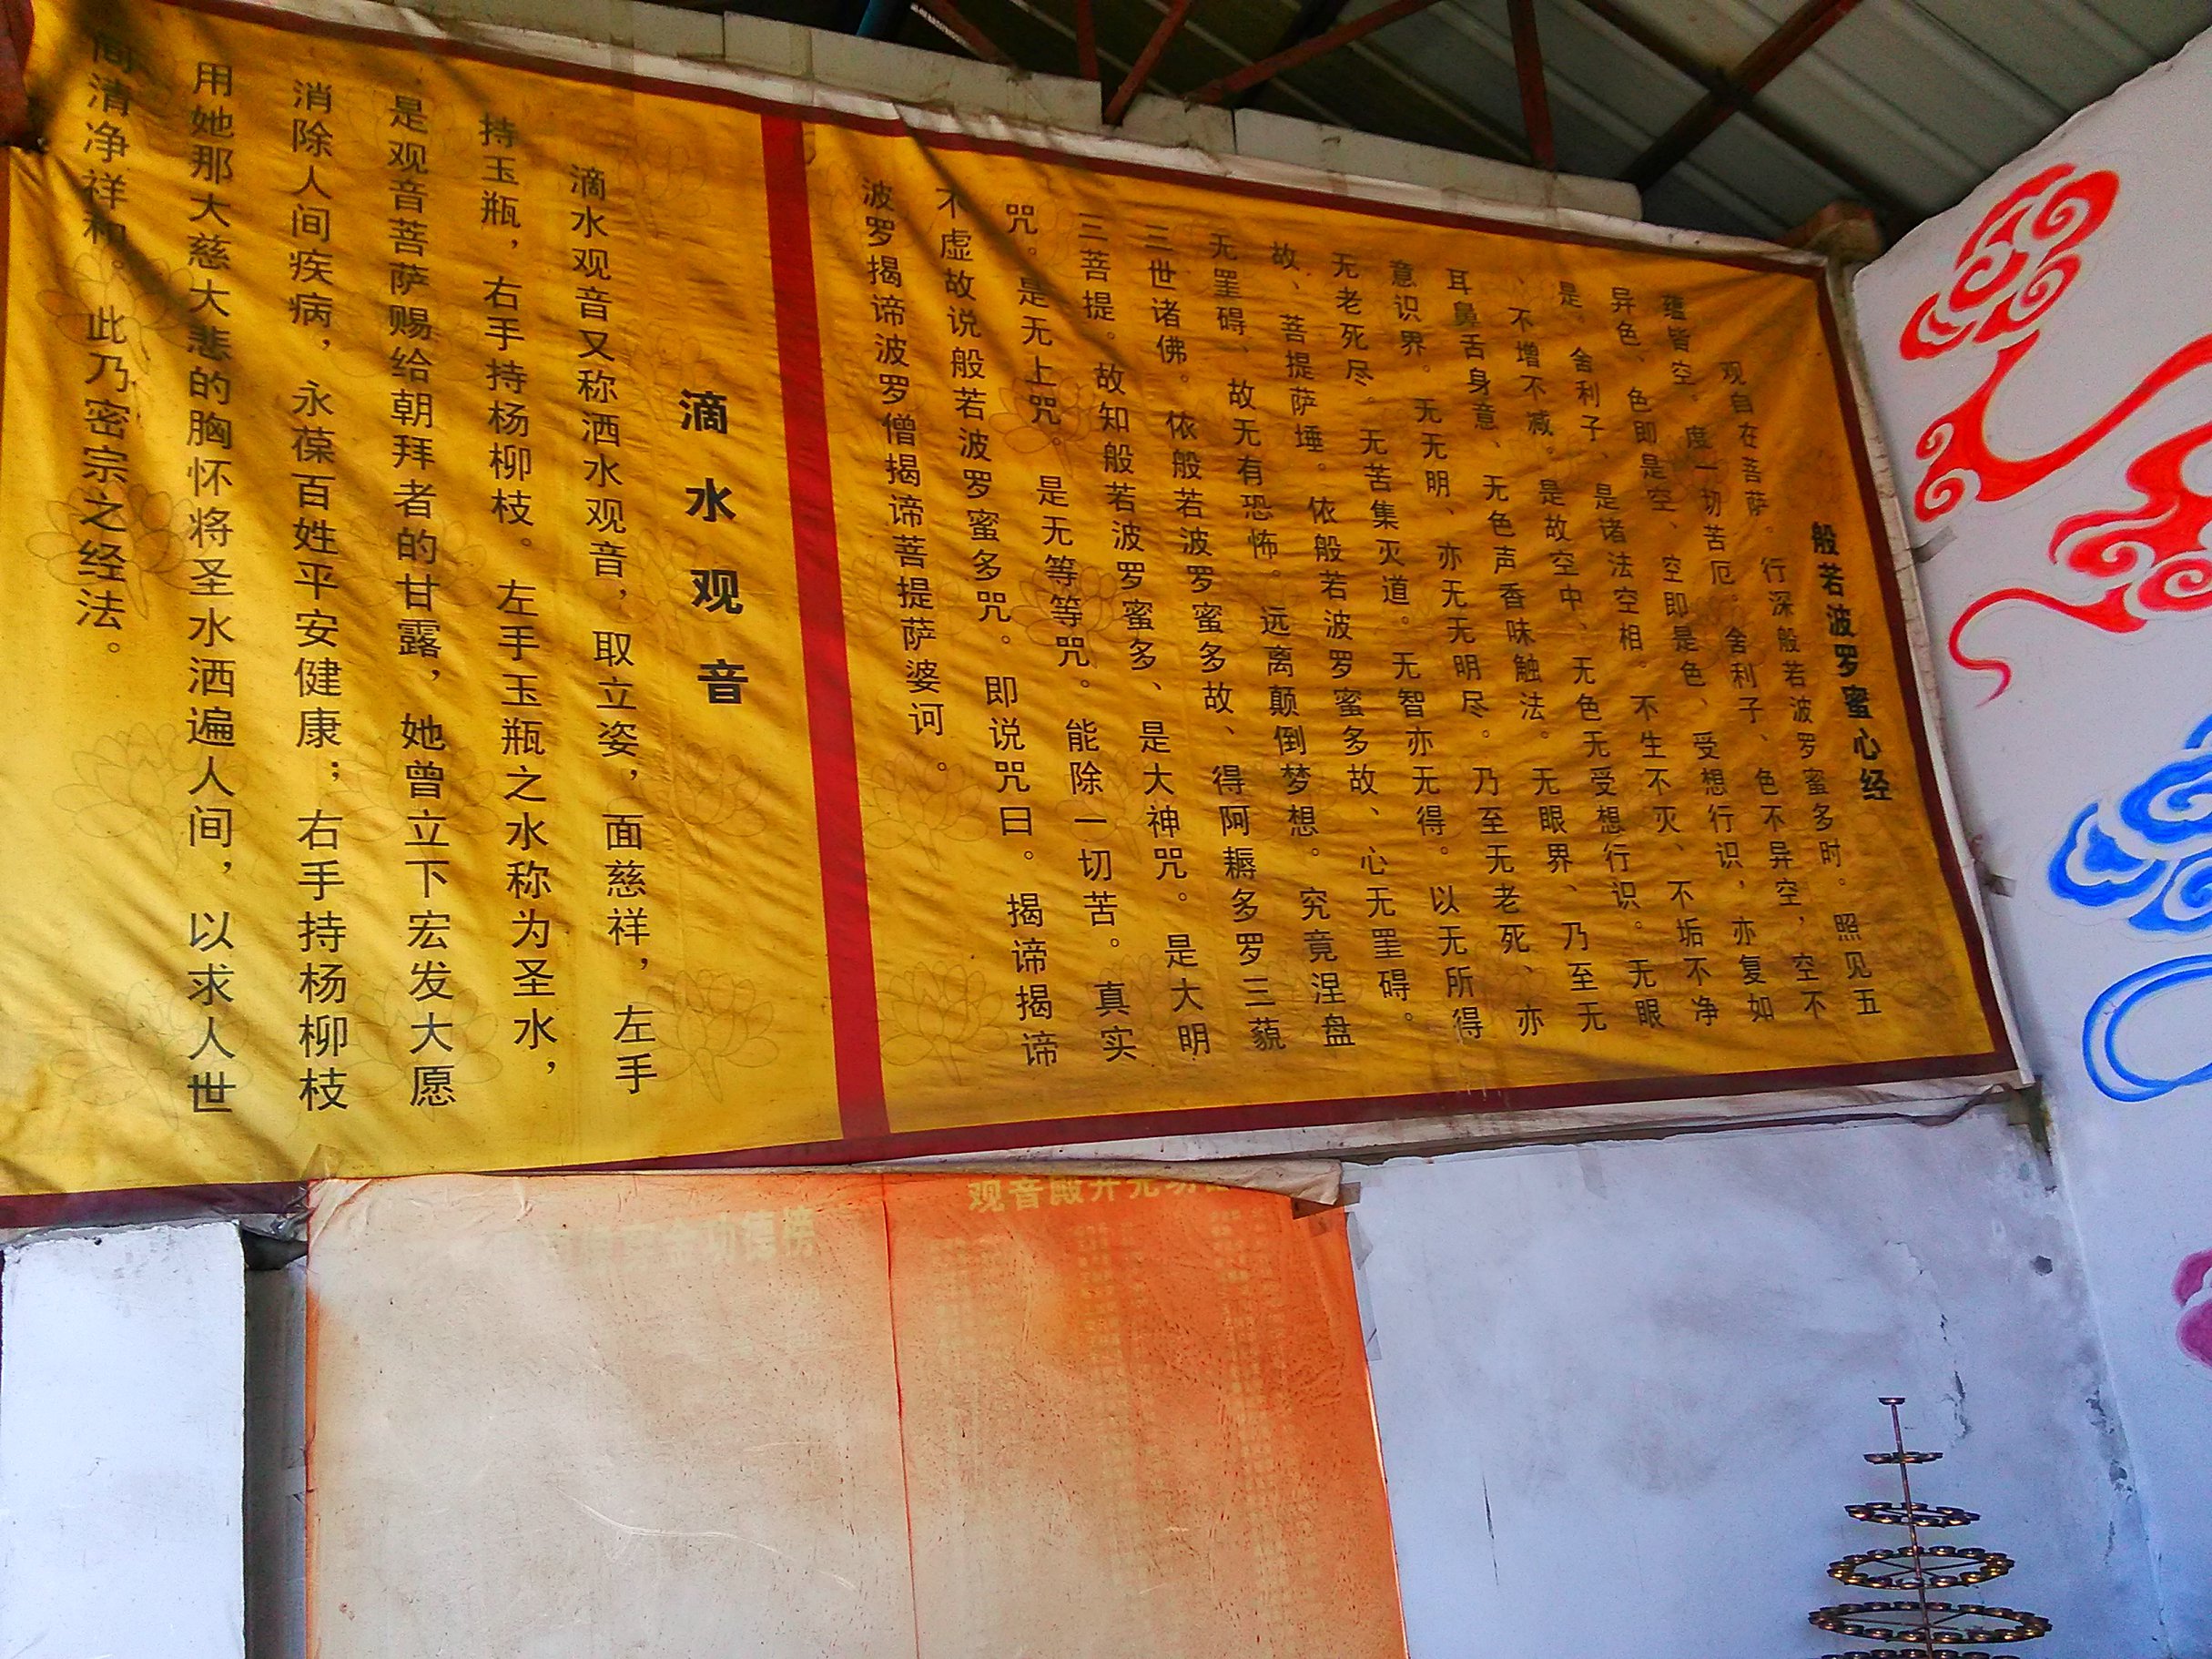 般若波罗蜜心经
观自在菩萨。行深般若波罗蜜多时。照见五
蕴皆空。度一切苦厄。舍利子、色不异空，空不
异色、色即是空、空即是色、受想行识，亦复如
是。舍利子、是诸法空相。不生不灭、不垢不净
、不增不减。是故空中、无色无受想行识。无眼
耳鼻舌身意、无色声香味触法。无眼界、乃至无
意识界。无无明、亦无无明尽。乃至无老死、亦
无老死尽。无苦集灭道。无智亦无得。以无所得
故、菩提萨埵。依般若波罗蜜多故、心无罣碍。
无罣碍、故无有恐怖。远离颠倒梦想。究竟涅盘
三世诸佛。依般若波罗蜜多故、得阿耨多罗三藐
三菩提。故知般若波罗蜜多、是大神咒。是大明
咒。是无上咒。是无等等咒。能除一切苦。真实
不虚故说般若波罗蜜多咒。即说咒曰。揭谛揭谛
波罗揭谛波罗僧揭谛菩提萨婆诃。
滴水观音
滴水观音又称洒水观音，取立姿，面慈祥，左手
持玉瓶，右手持杨柳枝。左手玉瓶之水称为圣水，
是观音菩萨赐给朝拜者的甘露，她曾立下宏发大愿
消除人间疾病，永葆百姓平安健康；右手持杨柳枝
用她那大慈大悲的胸怀将圣水洒遍人间，以求人世
间清净祥和。此乃密宗之经法。
观音殿开光功